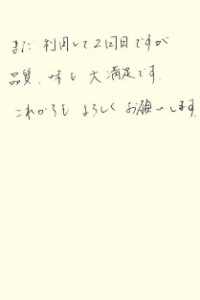 まだ 利用して2回目ですが
品質、味も 大満足です.
これからも よろしく お願いします.